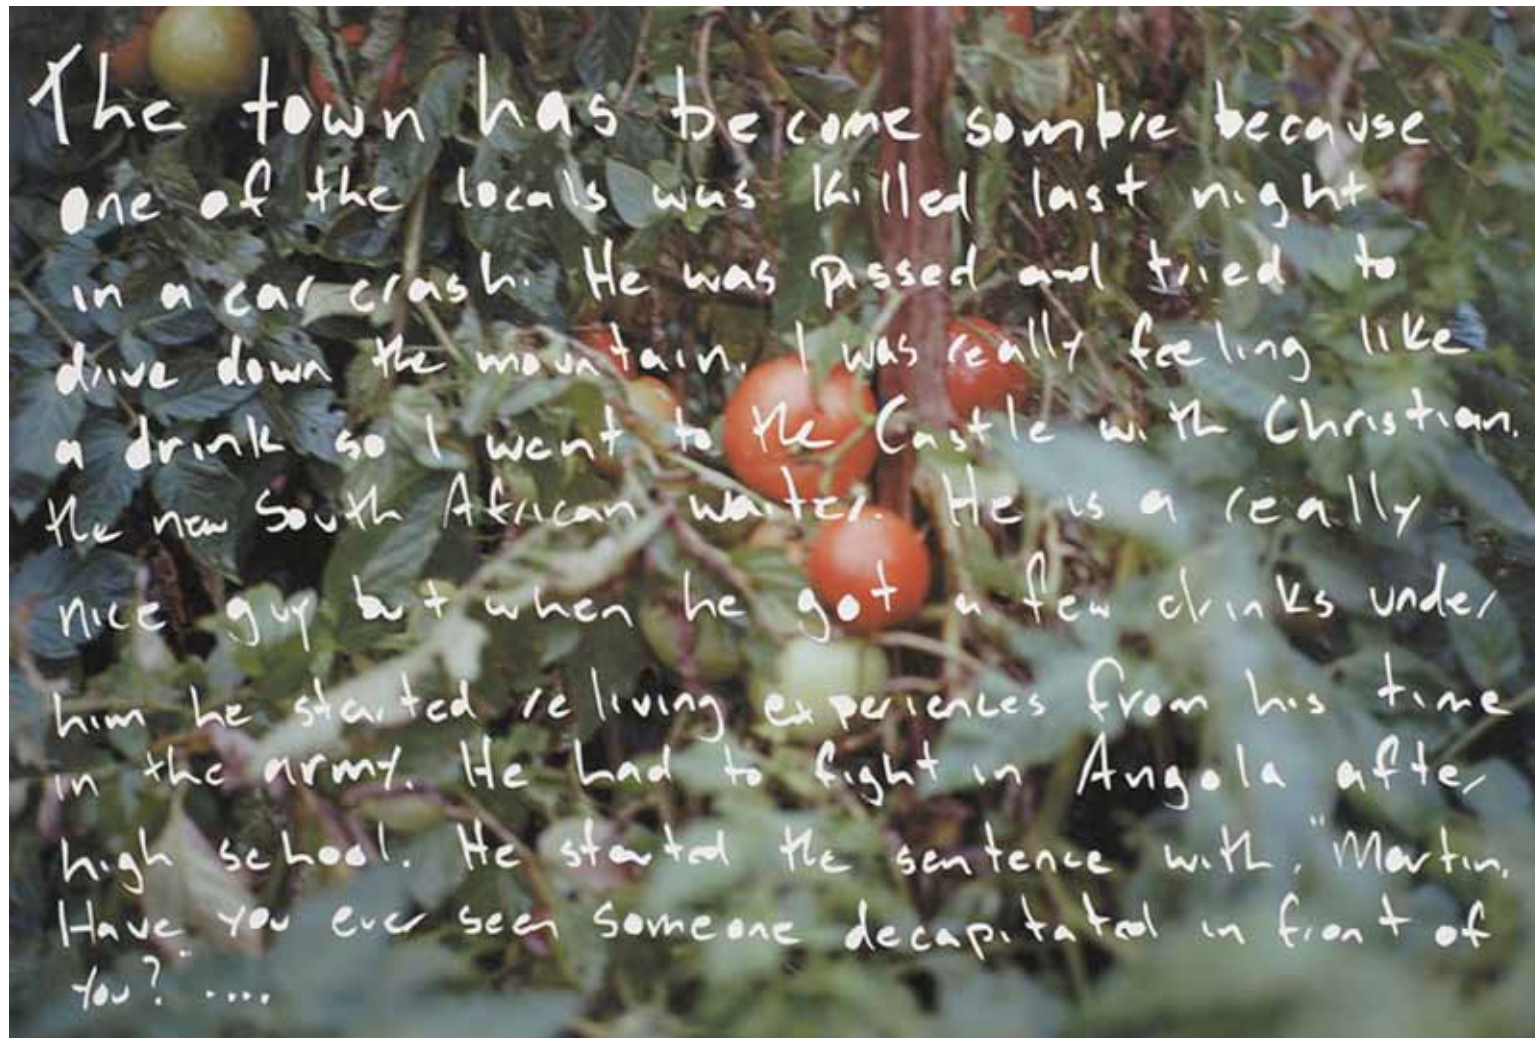 The town has become sombre because
one of the locals was killed last night
in a car crash. He was pissed and tried to
drive down the mountain. I was really feeling like
a drink so I went to the Castle with Christian.
the new South African waiter. He is a really
nice guy but when he got a few drinks under
him he started reliving experiences from his time
in the army. He had to fight in Angola after
high school. He started the sentence with, "Martin,
Have you ever seen someone decapitated in front of
you?" ....